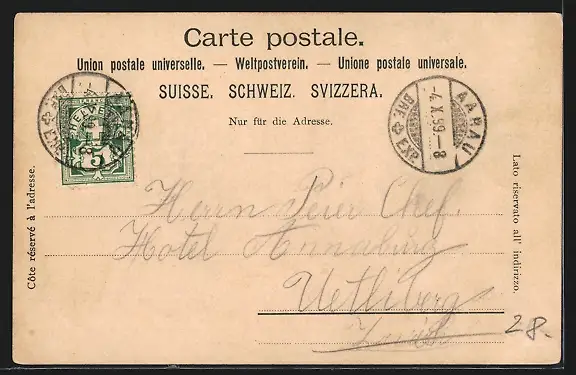 Carte postale.
Union postale universelle. — Weltpostverein. — Unione postale universale.
SUISSE. SCHWEIZ. SVIZZERA.
Nur für die Adresse.
HELVETIA
5
AARAU
-4. X. 99.-8
BRF. EXP.
Côte réservé à l'adresse.
Lato riservato all' indirizzo.
Herrn Peier Chef.
Hotel Annaburg
Uetliberg
Zürich
28.